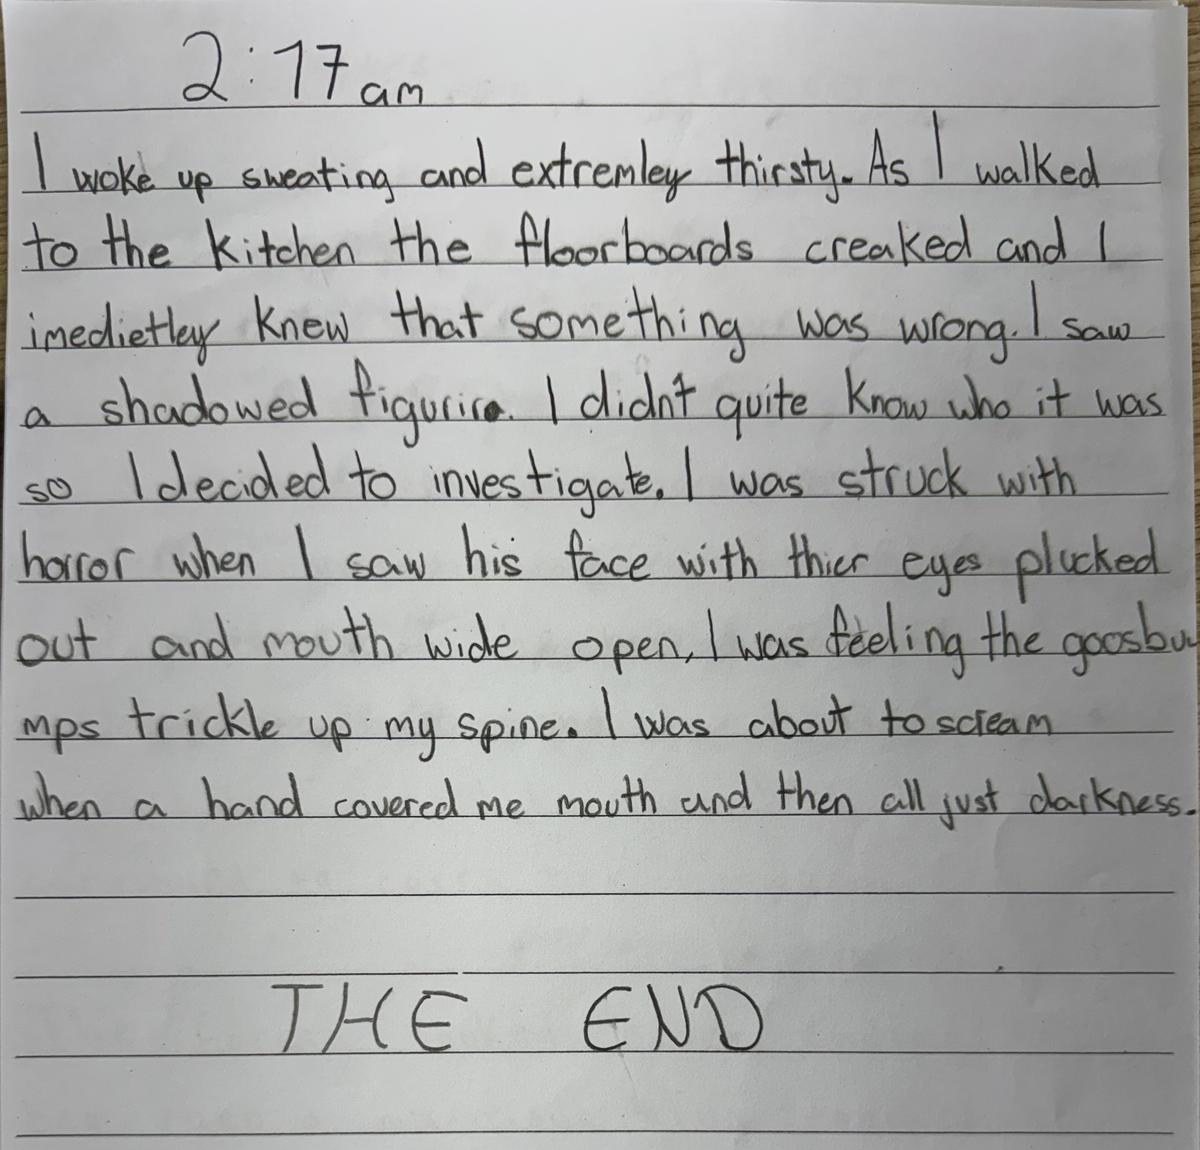 2:17 am
I woke up sweating and extremley thirsty. As I walked
to the kitchen the floorboards creaked and I
imedietley knew that something was wrong. I saw
a shadowed figurire. I didn't quite know who it was
so I decided to investigate. I was struck with
horror when I saw his face with thier eyes plucked
out and mouth wide open, I was feeling the goosbu
mps trickle up my spine. I was about to scream
when a hand covered me mouth and then all just darkness.
THE END